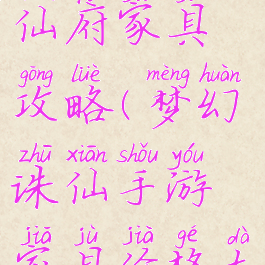 仙府家具
gōng lüè mèng huàn
攻略(梦幻
zhū xiān shǒu yóu
诛仙手游
jiā jù jià gé dà
家具价格大